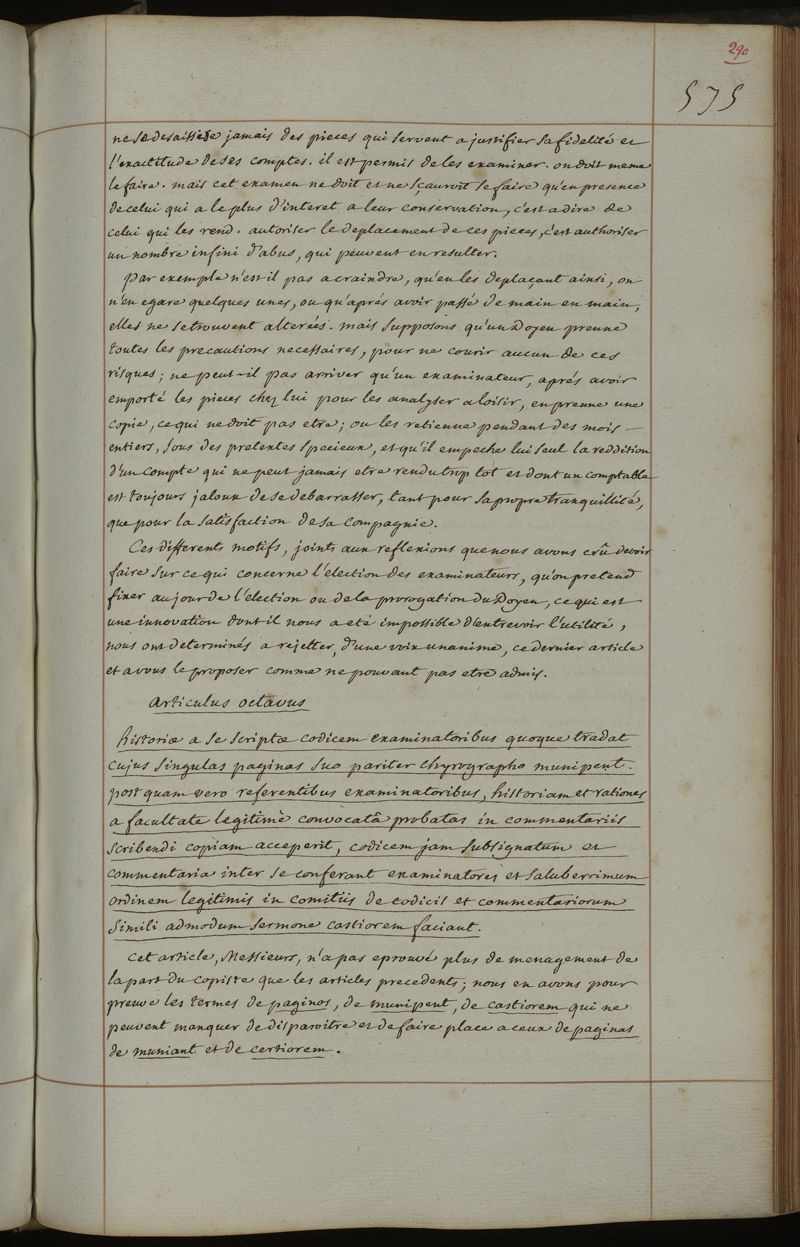 290
575
ne se desaisisse jamais des pieces qui servent a justifier sa fidelité et
l'exactitude de ses comptes. il est permis de les examiner. on doit meme
le faire. mais cet examen ne doit et ne sçauroit se faire qu'en presence
de celui qui a le plus d'interet a leur conservation, c'est a dire de
celui qui les rend. autoriser le deplacement de ces pieces, c'est authoriser
un nombre infini d'abus, qui peuvent en resulter.
Par exemple n'est il pas a craindre, qu'en les deplaçant ainsi, on
n'en egare quelques unes, ou qu'aprés avoir passé de main en main,
elles ne se trouvent alterées. mais supposons qu'un Doyen prenne
toutes les precautions necessaires, pour ne courir aucun de ces
risques; ne peut-il pas arriver qu'un examinateur, aprés avoir
emporté les pieces chez lui pour les analyser a loisir, en prenne une
copie, ce qui ne doit pas etre; ou les retienne pendant des mois
entiers, sous des pretextes specieux, et qu'il empeche lui seul la reddition
d'un compte qui ne peut jamais etre rendu trop tot et dont un comptable
est toujours jaloux de se debarrasser, tant pour sa propre tranquillité,
que pour la satisfaction de sa compagnie.
Ces differents motifs, joints aux reflexions que nous avons crû devoir
faire sur ce qui concerne l'election des examinateurs, qu'on pretend
fixer au jour de l'election ou de la prorogation du Doyen, ce qui est
une innovation dont il nous a eté impossible d'entrevoir l'utilité,
nous ont determinés a rejetter, d'une voix unanime, ce dernier article
et a vous le proposer comme ne pouvant pas etre admis.
Articulus octavus
historiæ a se scriptæ codicem examinatoribus quoque tradat
cujus singulas paginas suo pariter chyrographo munipent.
post quam vero referentibus examinatoribus, historiam et rationes
a facultate legitimè convocatâ probatas in commentariis
scribendi copiam acceperit, codicem jam subsignatum et
commentaria inter se conferant examinatores et saluberrimum
ordinem legitimis in comitiis de codicis et commentariorum
simili admodum sermone castiorem faciant.
Cet article, Messieurs, n'a pas eprouvé plus de menagement de
la part du copiste que les articles precedents; nous en avons pour
preuve les termes de paginos, de munipent, de castiorem qui ne
peuvent manquer de disparoitre et de faire place a ceux de paginas
de muniant et de certiorem.